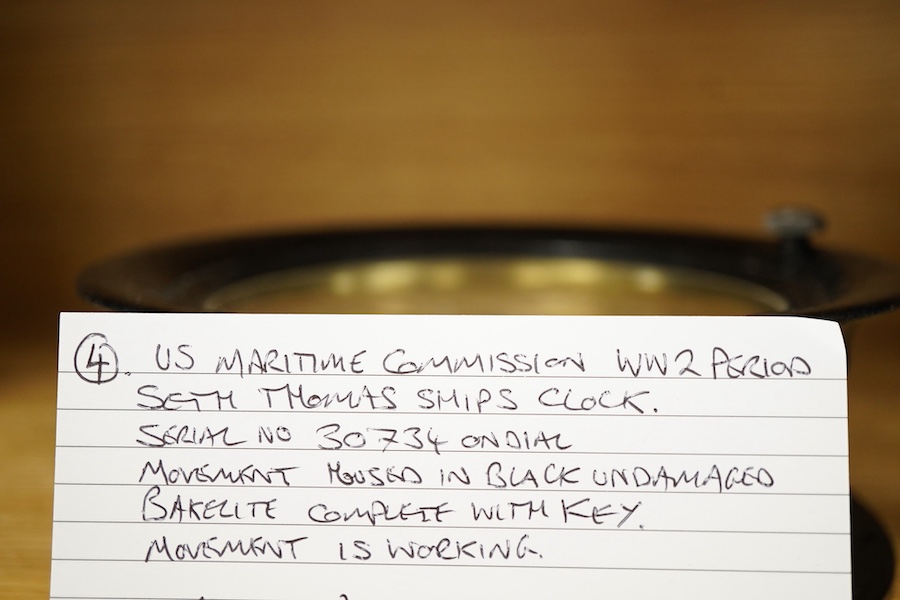 4. US MARITIME COMMISSION WW2 PERIOD
SETH THOMAS SHIPS CLOCK.
SERIAL NO 30734 ON DIAL
MOVEMENT HOUSED IN BLACK UNDAMAGED
BAKELITE COMPLETE WITH KEY.
MOVEMENT IS WORKING.